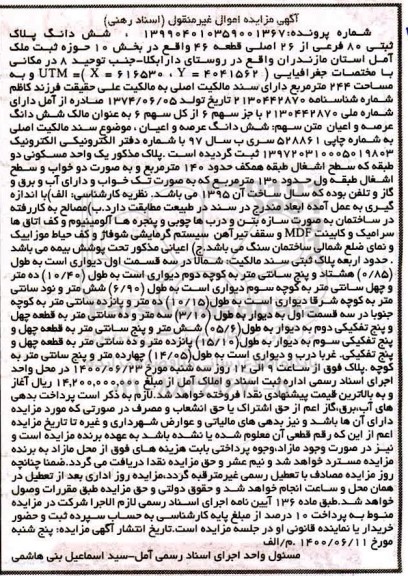 آگهی مزایده اموال غیرمنقول (اسناد رهنی)
شماره پرونده: ۱۳۹۹۰۴۰۱۰۳۵۹۰۰۱۳۶۷ ، شش دانگ پلاک
ثبتی ۸۰ فرعی از ۲۶ اصلی قطعه ۴۶ واقع در بخش ۱۰ حوزه ثبت ملک
آمل استان مازندران واقع در روستای دارابکلا-جنب توحید ۸ در مکانی
با مختصات جغرافیایی ( X = ۶۱۶۵۳۰ ، Y = ۴۰۴۱۵۶۲ )= UTM و به
مساحت ۲۴۴ مترمربع دارای سند مالکیت اصلی به مالکیت علی حقیقت فرزند کاظم
شماره شناسنامه ۲۱۳۰۴۴۲۸۷۰ تاریخ تولد ۱۳۷۴/۰۶/۰۵ صادره از آمل دارای
شماره ملی ۲۱۳۰۴۴۲۸۷۰ با جز سهم ۶ از کل سهم ۶ به عنوان مالک شش دانگ
عرصه و اعیان متن سهم: شش دانگ عرصه و اعیان ، موضوع سند مالکیت اصلی
به شماره چاپی ۵۲۸۸۶۱ سری ب سال ۹۷ با شماره دفتر الکترونیکی الکترونیک
۱۳۹۷۲۰۳۱۰۰۰۵۰۱۹۸۰۳ ثبت گردیده است .پلاک مذکور یک واحد مسکونی دو
طبقه که سطح اشغال طبقه همکف حدود ۱۴۰ مترمربع و به صورت دو خواب و سطح
اشغال طبقه ول حدود ۱۳۰ مترمربع که به صورت تک خواب و دارای آب و برق و
گاز و تلفن بوده که سال ساخت آن ۱۳۹۵ می باشد. نظریه کارشناسی: الف)با اندازه
گیری به عمل آمده ابعاد مندرج در سند در طبیعت مطابقت دارد.ب)مصالح به کار رفته
در ساختمان به صورت سازه بتن و درب ها چوبی و پنجره ها آلومینیوم و کف اتاق ها
سرامیک و کابینت MDF و سقف تیرآهن، سیستم گرمایشی شوفاژ و کف حیاط موزاییک
و نمای ضلع شمالی ساختمان سنگ می باشد.ج) اعیانی مذکور تحت پوشش بیمه می باشد
. حدود اربعه پلاک ثبتی سند مالکیت: شمالا در سه قسمت اول دیواری است به طول
(۰/۸۵) هشتاد و پنج سانتی متر به کوچه دوم دیواری است به طول (۱۰/۴۰) ده متر
و چهل سانتی متر به کوچه سوم دیواری است به طول (۶/۹۰) شش متر و نود سانتی
متر به کوچه شرقا دیواری است به طول(۱۰/۱۵) ده متر و پانزده سانتی متر به کوچه
جنوبا در سه قسمت اول به دیوار به طول (۳/۱۰) سه متر و ده سانتی متر به قطعه چهل
و پنج تفکیکی دوم به دیوار به طول(۶/۰۵) شش متر و پنج سانتی متر به قطعه چهل و
پنج تفکیکی سوم به دیوار به طول(۱۵/۱۰) پانزده متر و ده سانتی متر به قطعه چهل و
پنج تفکیکی. غربا درب و دیواری است به طول(۱۴/۰۵) چهارده متر و پنج سانتی متر به
کوچه .پلاک فوق از ساعت ۹ الی ۱۲ روز سه شنبه مورخ ۱۴۰۰/۰۶/۲۳ در محل واحد
اجرای اسناد رسمی اداره ثبت اسناد و املاک آمل از مبلغ ۱۴,۲۰۰,۰۰۰,۰۰۰ ریال آغاز
و به بالاترین قیمت پیشنهادی نقدا فروخته خواهد شد.لازم به ذکر است پرداخت بدهی
های آب،برق،گاز اعم از حق اشتراک یا حق انشعاب و مصرف در صورتی که مورد مزایده
دارای آن ها باشد و نیز بدهی های مالیاتی و عوارض شهرداری و غیره تا تاریخ مزایده
اعم از این که رقم قطعی آن معلوم شده یا نشده باشد به عهده برنده مزایده است و
نیز در صورت وجود مازاد،وجوه پرداختی بابت هزینه های فوق از محل مازاد به برنده
مزایده مسترد خواهد شد و نیم عشر و حق مزایده نقدا دریافت می گردد.ضمنا چنانچه
روز مزایده مصادف با تعطیل رسمی غیرمترقبه گردد،مزایده روز اداری بعد از تعطیل در
همان محل و ساعت انجام خواهد شد و حقوق دولتی و حق مزایده طبق مقررات وصول
خواهد شد.طبق ماده ۱۳۶ آیین نامه اجرای اسناد رسمی لازم الاجرا شرکت در مزایده
منوط به پرداخت ۱۰ درصد از مبلغ پایه کارشناسی به حساب سپرده ثبت و حضور
خریدار یا نماینده قانونی او در جلسه مزایده است.تاریخ انتشار آگهی مزایده: پنج شنبه
مورخ ۱۴۰۰/۰۶/۱۱ .م/الف
مسئول واحد اجرای اسناد رسمی آمل-سید اسماعیل بنی هاشمی